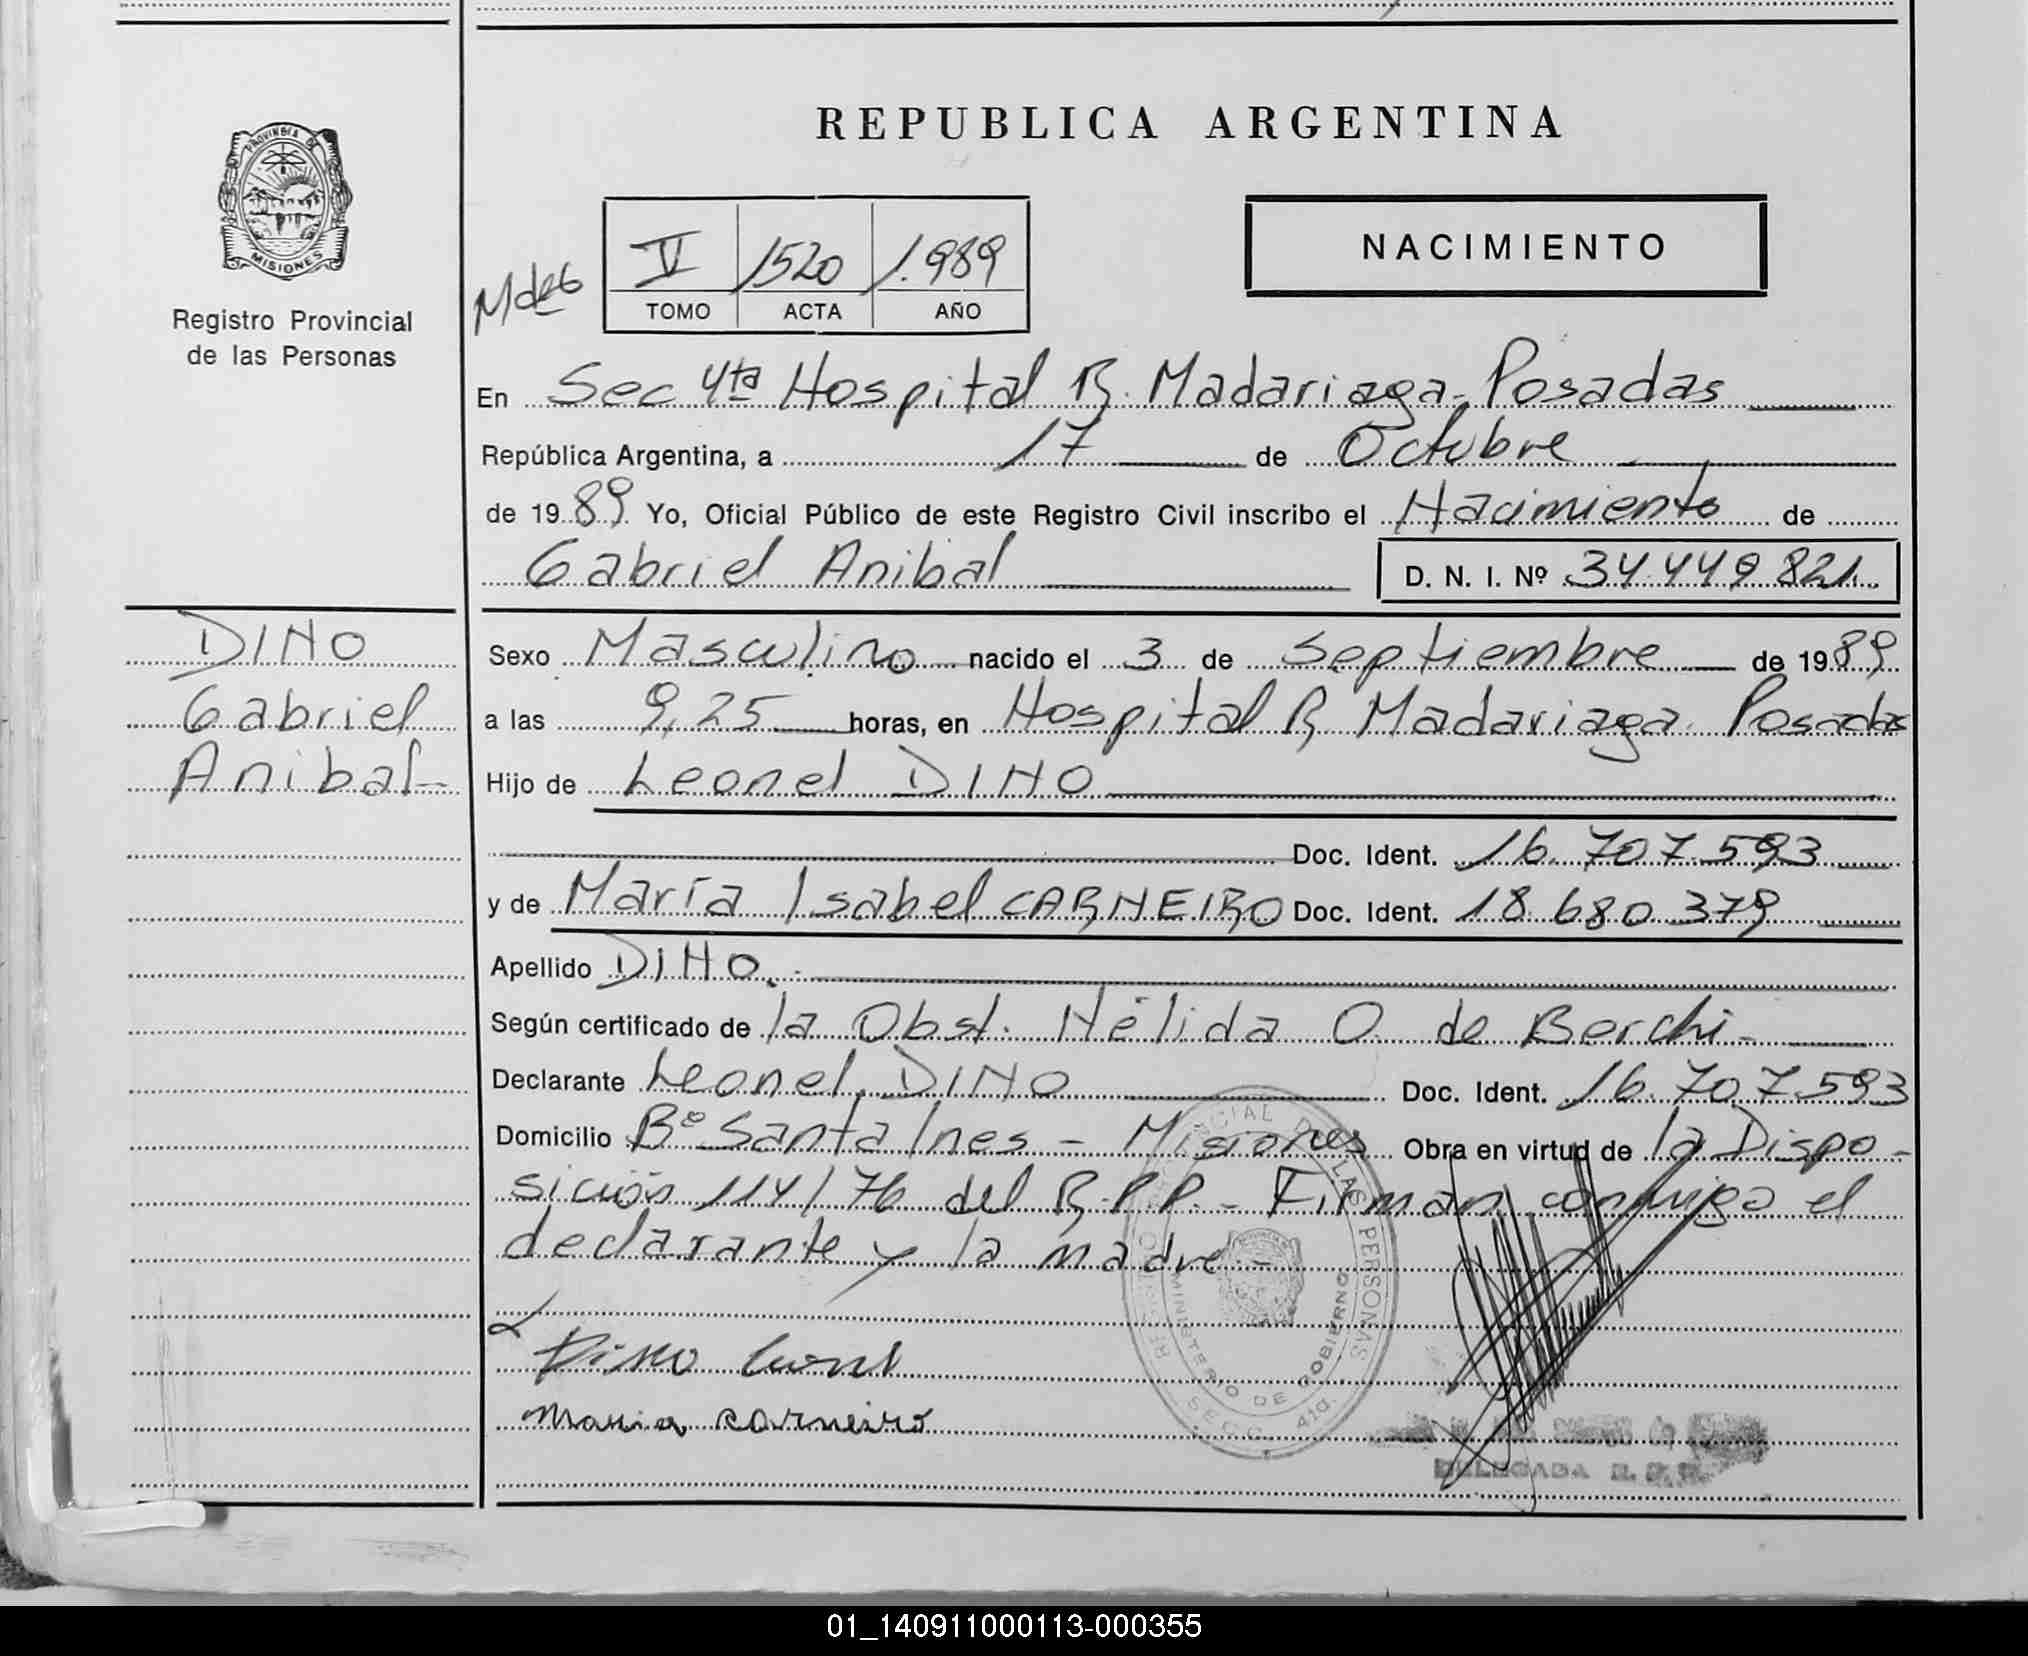 REPUBLICA ARGENTINA
PROVINCIA DE MISIONES
Registro Provincial
de las Personas
V 1520 1.989
TOMO ACTA AÑO
NACIMIENTO
En Sec 4ta Hospital R. Madariaga - Posadas
República Argentina, a 17 de Octubre
de 1989 Yo, Oficial Público de este Registro Civil inscribo el Nacimiento de
Gabriel Anibal D. N. I. Nº 34.449.821
DINO
Gabriel
Anibal-
Sexo Masculino nacido el 3 de Septiembre de 1989
a las 9,25 horas, en Hospital R. Madariaga. Posadas
Hijo de Leonel DINO
Doc. Ident. 16.707.593
y de María Isabel CARNEIRO Doc. Ident. 18.680.379
Apellido DINO.-
Según certificado de la Obst. Nélida O. de Berchi-
Declarante Leonel DINO Doc. Ident. 16.707.593
Domicilio Bº Santa Ines - Misiones Obra en virtud de la Dispo-
sición 114/76 del R.P.P.- Firman conmigo el
declarante y la madre-
REGISTRO PROVINCIAL DE LAS PERSONAS
MINISTERIO DE GOBIERNO
SECC. 4ta.
Dino Leonel
Maria carneiro
DELEGADA R. P. P.
01_140911000113-000355